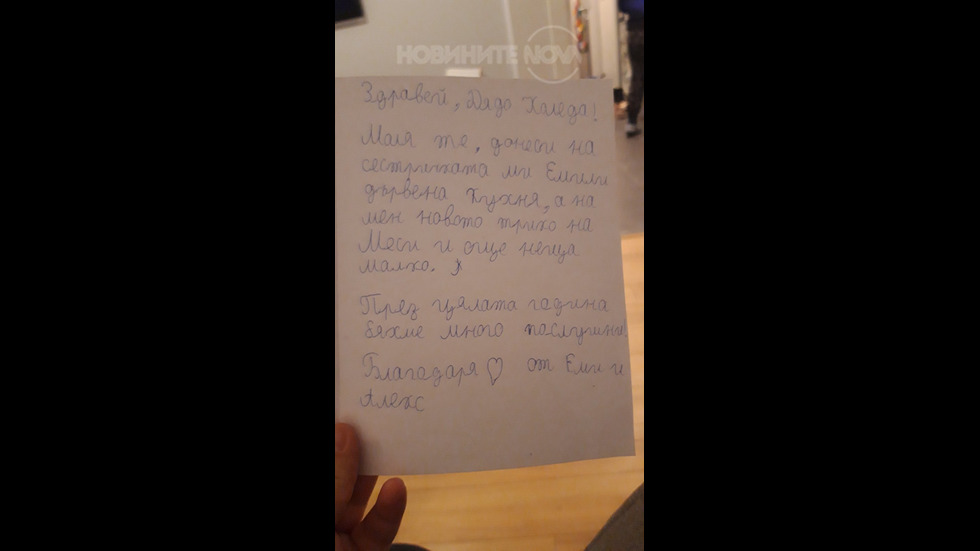 НОВИНИТЕ NOVA
Здравей, Дядо Коледа!
Моля те, донеси на
сестричката ми Емили
дървена кухня, а на
мен новото трико на
Меси и още неща
малко.
През цялата година
бяхме много послушни!
Благодаря ♡ от Еми и
Алекс